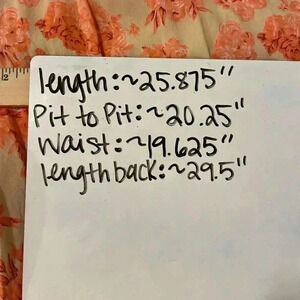 length:~25.875"
Pit to Pit:~20.25"
Waist:~19.625"
length back:~29.5"